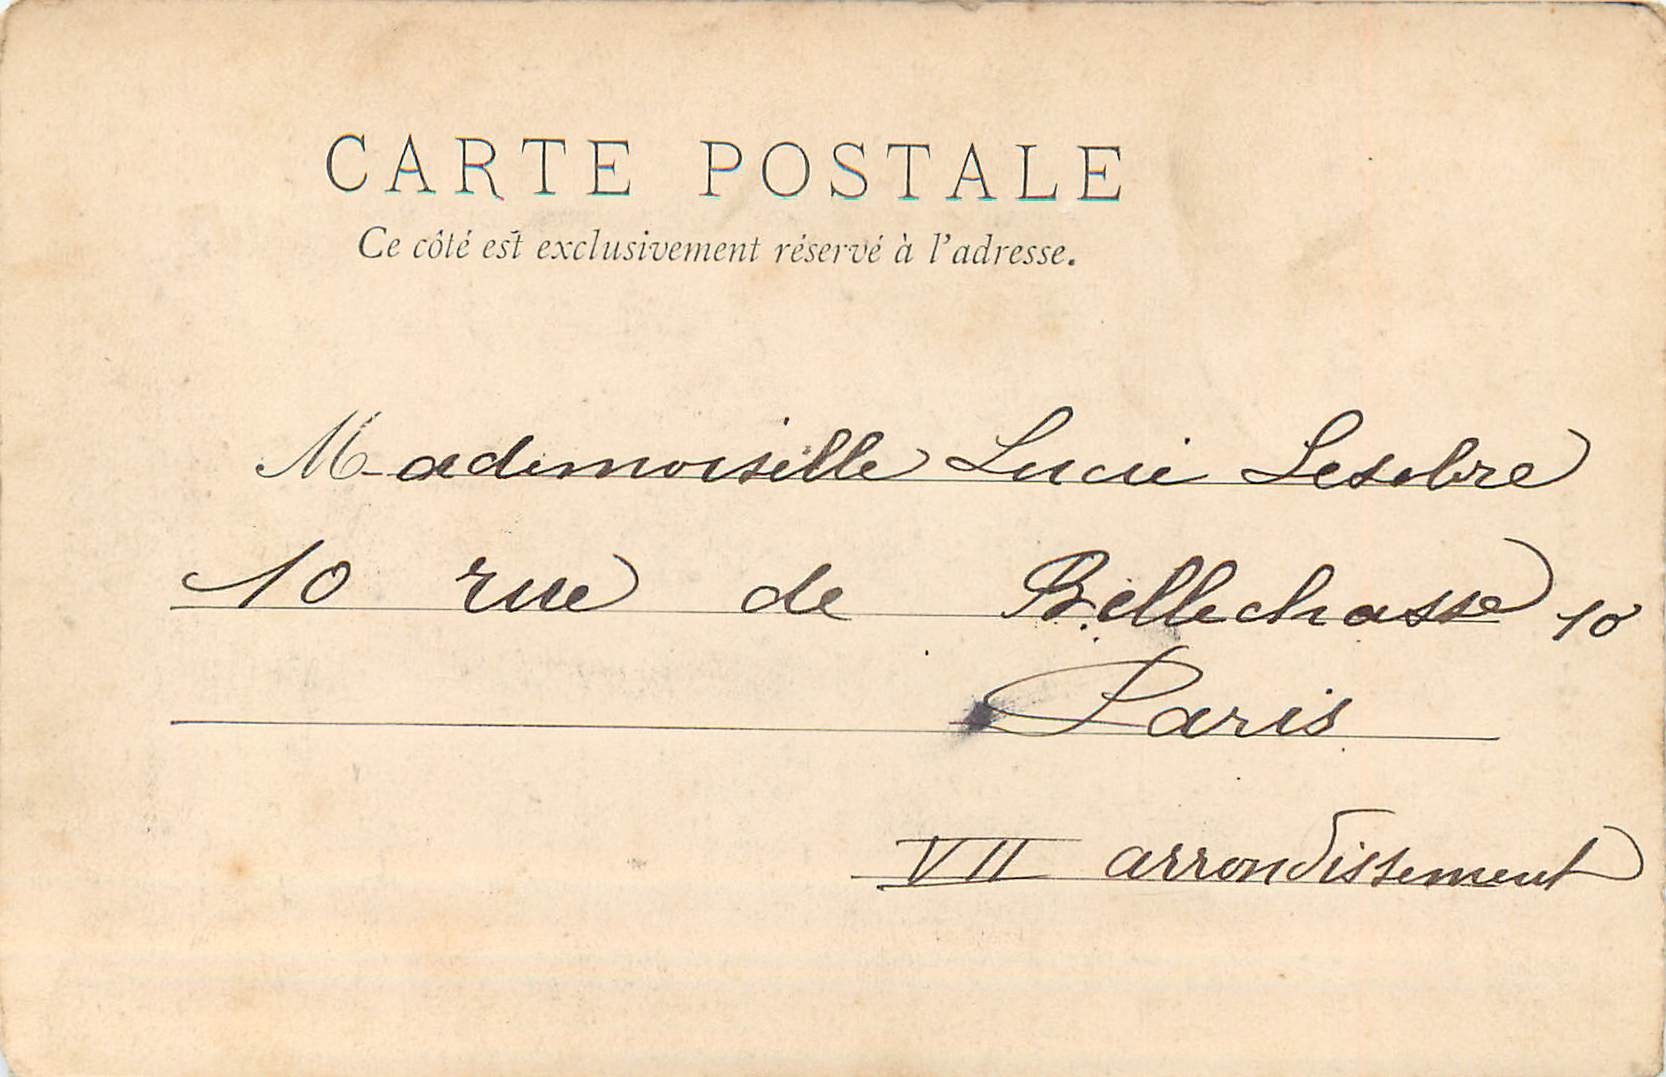 CARTE POSTALE
Ce côté est exclusivement réservé à l'adresse.
Mademoiselle Lucie Lesobre
10 rue de Bellechasse 10
Paris
VII arrondissement